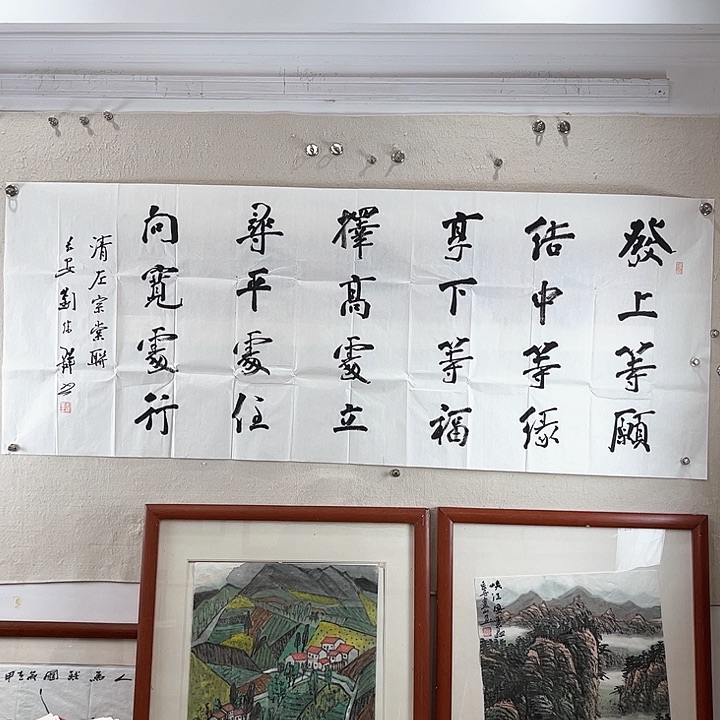 發上等願
結中等緣
享下等福
擇高處立
尋平處住
向寬處行
清左宗棠聯